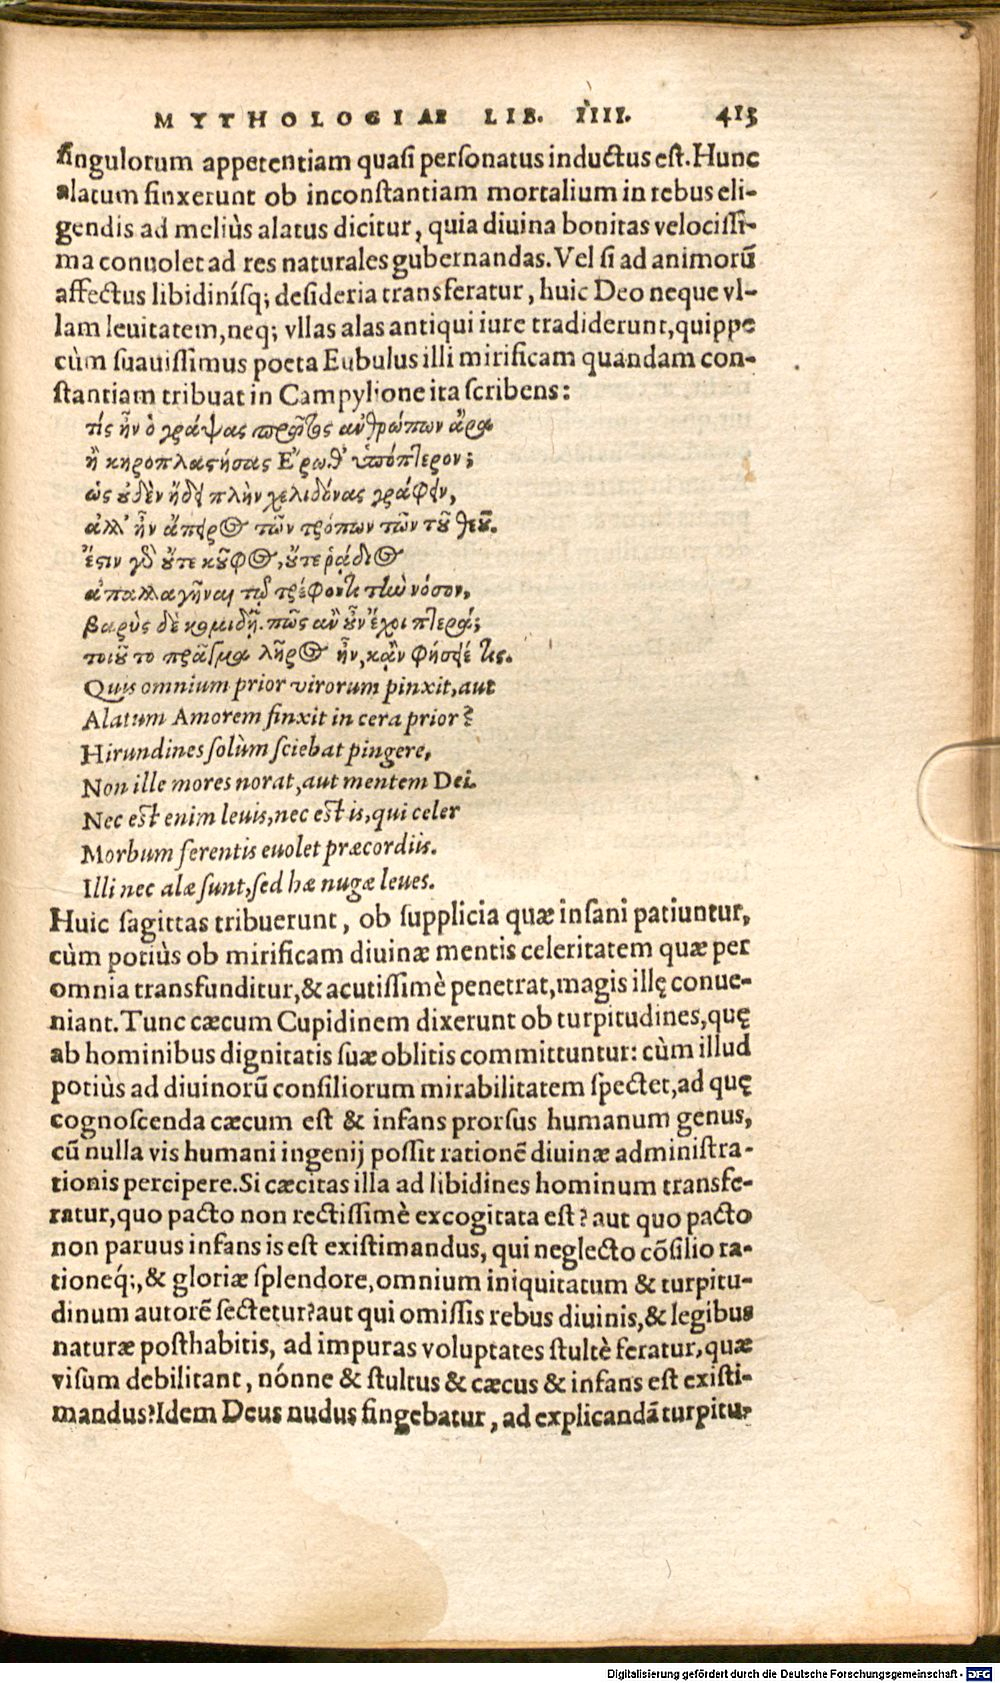 MYTHOLOGIAE LIB. IIII. 413
singulorum appetentiam quasi personatus inductus est. Hunc
alatum finxerunt ob inconstantiam mortalium in rebus eli-
gendis ad meliùs alatus dicitur, quia diuina bonitas velocissi-
ma conuolet ad res naturales gubernandas. Vel si ad animorũ
affectus libidinísq; desideria transferatur, huic Deo neque vl-
lam leuitatem, neq; vllas alas antiqui iure tradiderunt, quippe
cùm suauissimus poeta Eubulus illi mirificam quandam con-
stantiam tribuat in Campylione ita scribens:
τίς ἦν ὁ γράψας πρῶτος ἀνθρώπων ἄρα
ἢ κηροπλαστήσας Ἔρωθ' ὑπόπτερον;
ὡς οὐδὲν ᾔδει πλὴν χελιδόνας γράφειν,
ἀλλ' ἦν ἄπειρος τῶν τρόπων τῶν τοῦ θεοῦ.
ἔστιν γὸ οὔτε κοῦφος, οὔτε ῥάδιος
ἀπαλλαγῆναι τῷ φέροντι τὴν νόσον,
βαρὺς δὲ κομιδῇ. πῶς ἂν οὖν ἔχοι πτερά;
τοιοῦτο πρᾶγμα λῆρος ἦν, κἂν φήσειέ τις.
Quis omnium prior virorum pinxit, aut
Alatum Amorem finxit in cera prior?
Hirundines solùm sciebat pingere,
Non ille mores norat, aut mentem Dei.
Nec est enim leuis, nec est is, qui celer
Morbum ferentis euolet præcordiis.
Illi nec alæ sunt, sed hæ nugæ leues.
Huic sagittas tribuerunt, ob supplicia quæ insani patiuntur,
cùm potiùs ob mirificam diuinæ mentis celeritatem quæ per
omnia transfunditur, & acutissimè penetrat, magis illę conue-
niant. Tunc cæcum Cupidinem dixerunt ob turpitudines, quę
ab hominibus dignitatis suæ oblitis committuntur: cùm illud
potiùs ad diuinorũ consiliorum mirabilitatem spectet, ad quę
cognoscenda cæcum est & infans prorsus humanum genus,
cũ nulla vis humani ingenij possit rationẽ diuinæ administra-
tionis percipere. Si cæcitas illa ad libidines hominum transfe-
ratur, quo pacto non rectissimè excogitata est? aut quo pacto
non paruus infans is est existimandus, qui neglecto cõsilio ra-
tioneq́;, & gloriæ splendore, omnium iniquitatum & turpitu-
dinum autorẽ sectetur? aut qui omissis rebus diuinis, & legibus
naturæ posthabitis, ad impuras voluptates stultè feratur, quæ
visum debilitant, nónne & stultus & cæcus & infans est existi-
mandus? Idem Deus nudus fingebatur, ad explicandã turpitu-
Digitalisierung gefördert durch die Deutsche Forschungsgemeinschaft - DFG